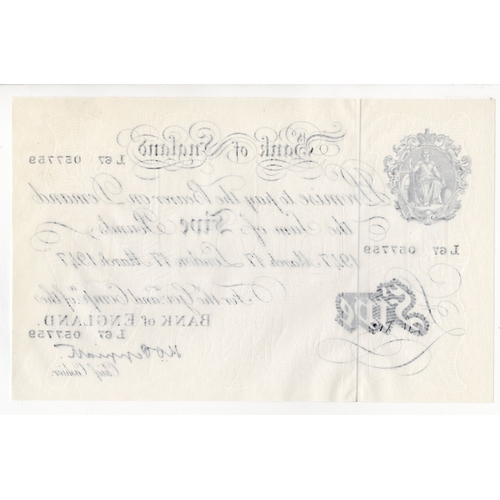 Bank of England
L67 057759
I Promise to pay the Bearer on Demand
the Sum of Five Pounds
L67 057759
1947 March 17 London 17 March 1947
For the Govr. and Compa. of the
BANK of ENGLAND.
£ Five
L67 057759
Chief Cashier.